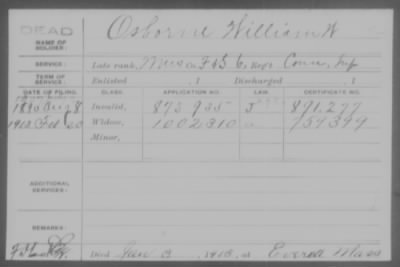 DEAD
NAME OF SOLDIER: Osborne William W
SERVICE: Late rank, Mus Co F & S 6, Reg't Conn. Inf
TERM OF SERVICE: Enlisted , 1 Discharged , 1
DATE OF FILING. CLASS. APPLICATION NO. LAW. CERTIFICATE NO.
1890 Aug 8 Invalid, 895 935 891.277
Widow, 1002310 759399
Minor,
ADDITIONAL SERVICES:
REMARKS:
Died Jan 3, 1913, at Everett Mass